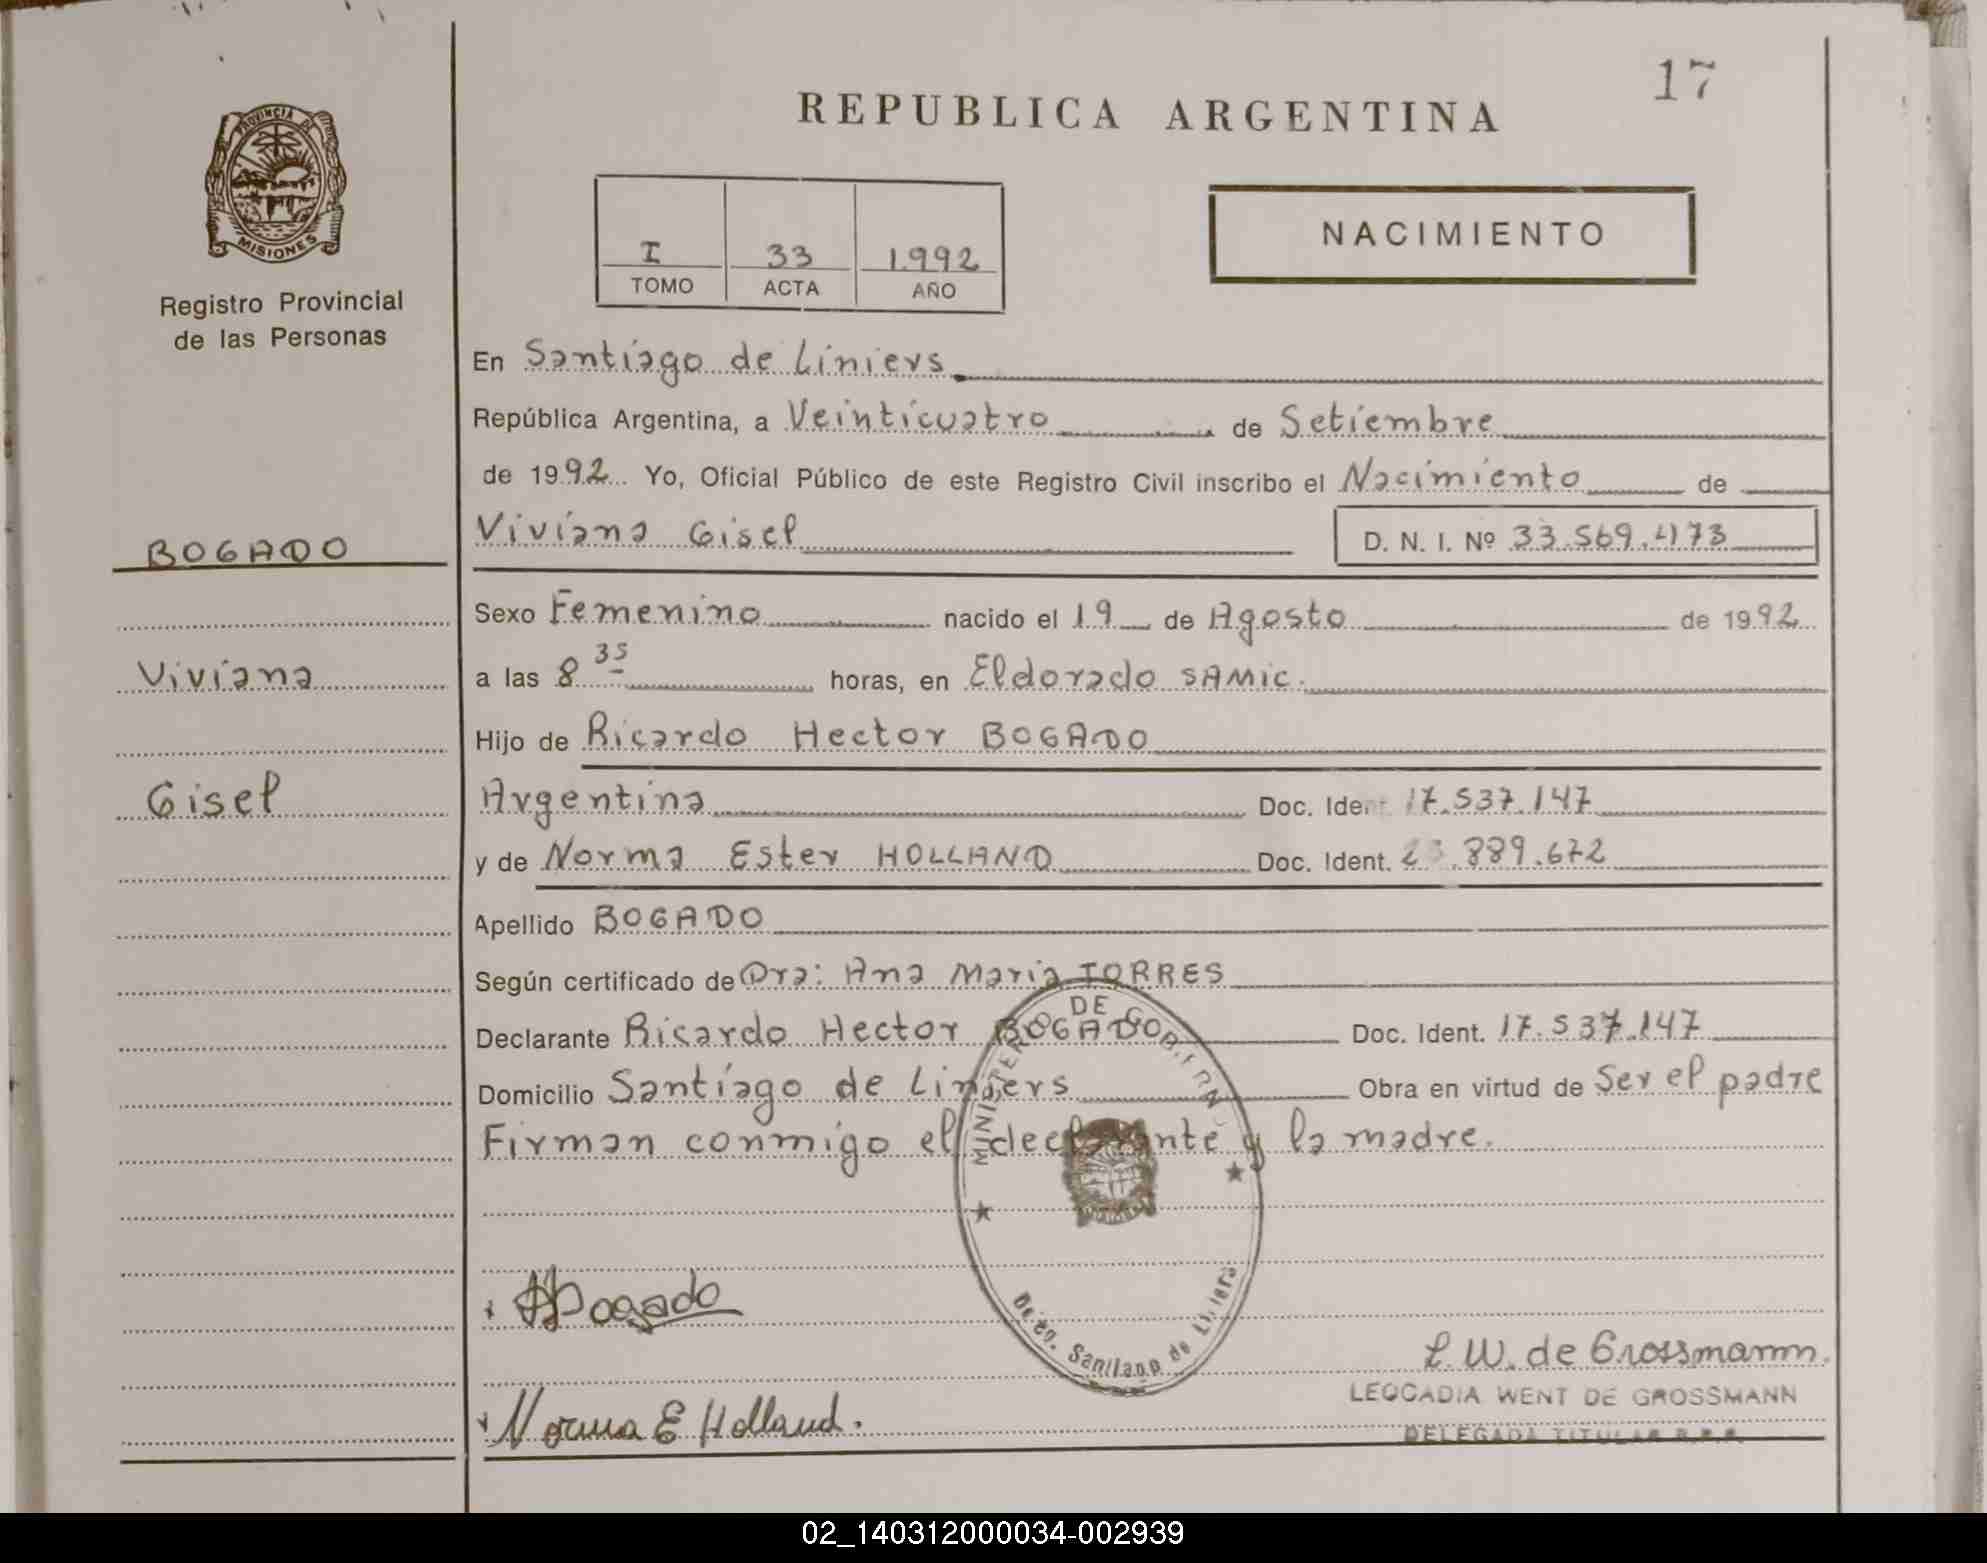 17
REPUBLICA ARGENTINA
PROVINCIA DE
MISIONES
Registro Provincial
de las Personas
I 33 1.992
TOMO ACTA AÑO
NACIMIENTO
En Santiago de Liniers
República Argentina, a Veinticuatro de Setiembre
de 1992 Yo, Oficial Público de este Registro Civil inscribo el Nacimiento de
Viviana Gisel D. N. I. Nº 33.569.473
BOGADO
Viviana
Gisel
Sexo Femenino nacido el 19 de Agosto de 1992
a las 8 35 horas, en Eldorado SAMIC.
Hijo de Ricardo Hector BOGADO
Argentina Doc. Ident. 17.537.147
y de Norma Ester HOLLAND Doc. Ident. .889.672
Apellido BOGADO
Según certificado de Dra: Ana Maria TORRES
Declarante Ricardo Hector BOGADO Doc. Ident. 17.537.147
Domicilio Santiago de Liniers Obra en virtud de Ser el padre
Firman conmigo el declarante y la madre.
MINISTERIO DE GOBIERNO
Dcto. Santiago de Liniers
Bogado
L. W. de Grossmann.
LEOCADIA WENT DE GROSSMANN
DELEGADA TITULAR R.P.P.
Norma E Holland.
02_140312000034-002939